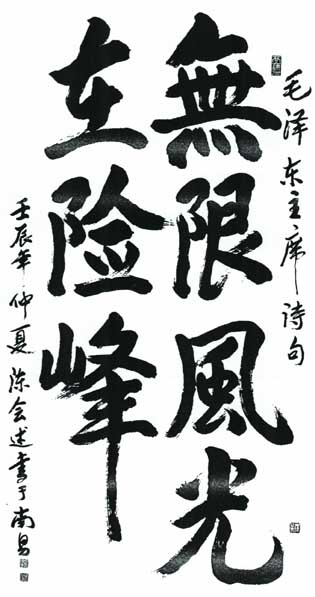 毛泽东主席诗句
無限風光
在险峰
壬辰年仲夏陈会述書于南昌